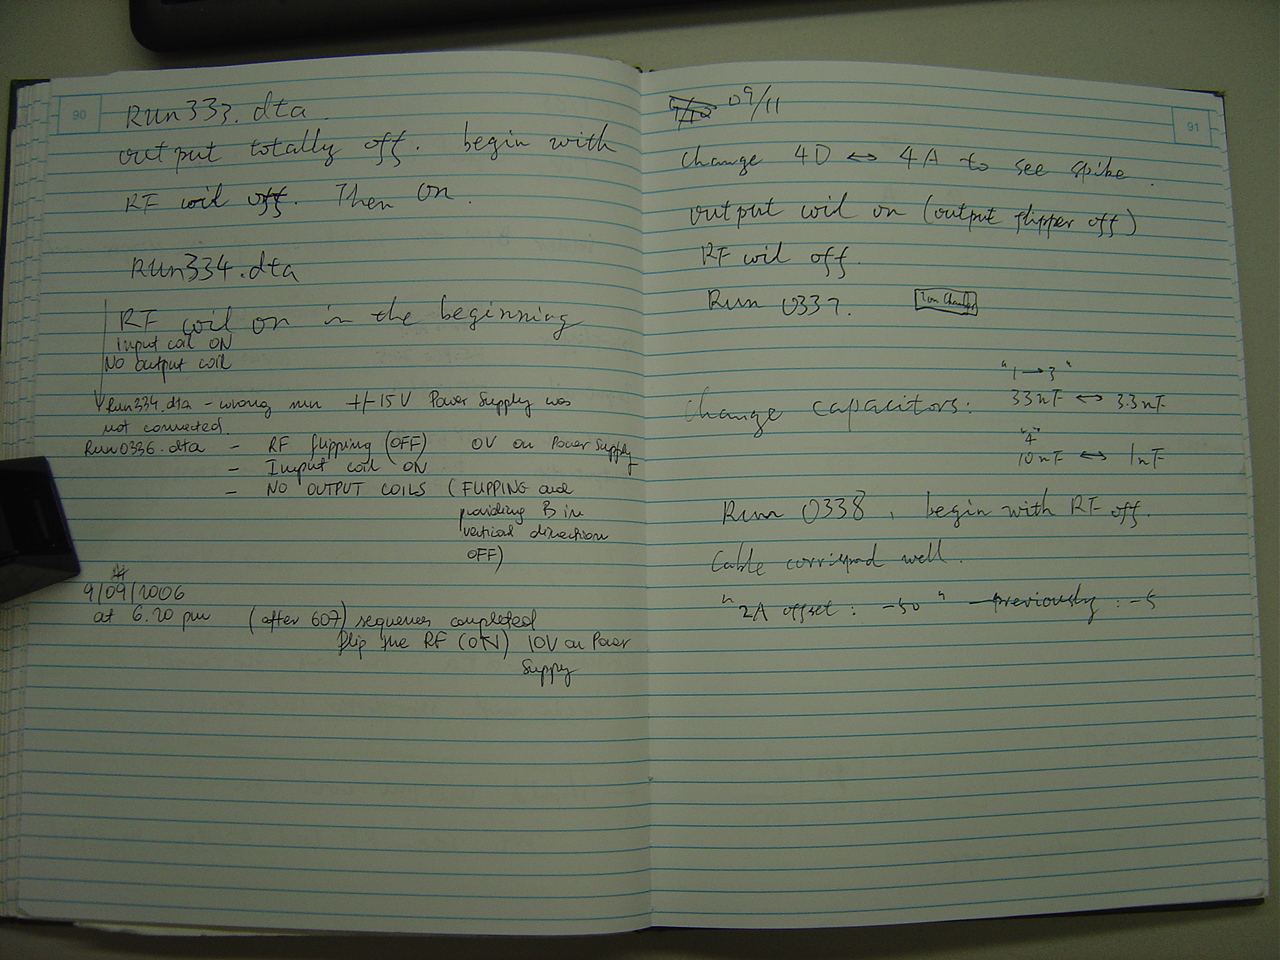 90
Run333.dta.
output totally off. begin with
RF coil off. Then on.
Run334.dta
RF coil on in the beginning
Input coil ON
NO output coil
Run334.dta - wrong run +/-15V Power Supply was
not connected.
Run0336.dta - RF flipping (OFF) 0V on Power Supply
- Input coil ON
- NO OUTPUT COILS (FLIPPING and
providing B in
vertical direction
OFF)
9/09/2006
at 6.20 pm (after 607) sequences completed
flip the RF (ON) 10V on Power
Supply
91
09/11
change 4D ↔ 4A to see spike.
output coil on (output flipper off)
RF coil off.
Run 0337.
"1→3"
change capacitors: 33nF ↔ 3.3nF
"4"
10nF ↔ 1nF
Run 0338, begin with RF off.
Cable correspond well.
"2A offset: -50" previously: -5